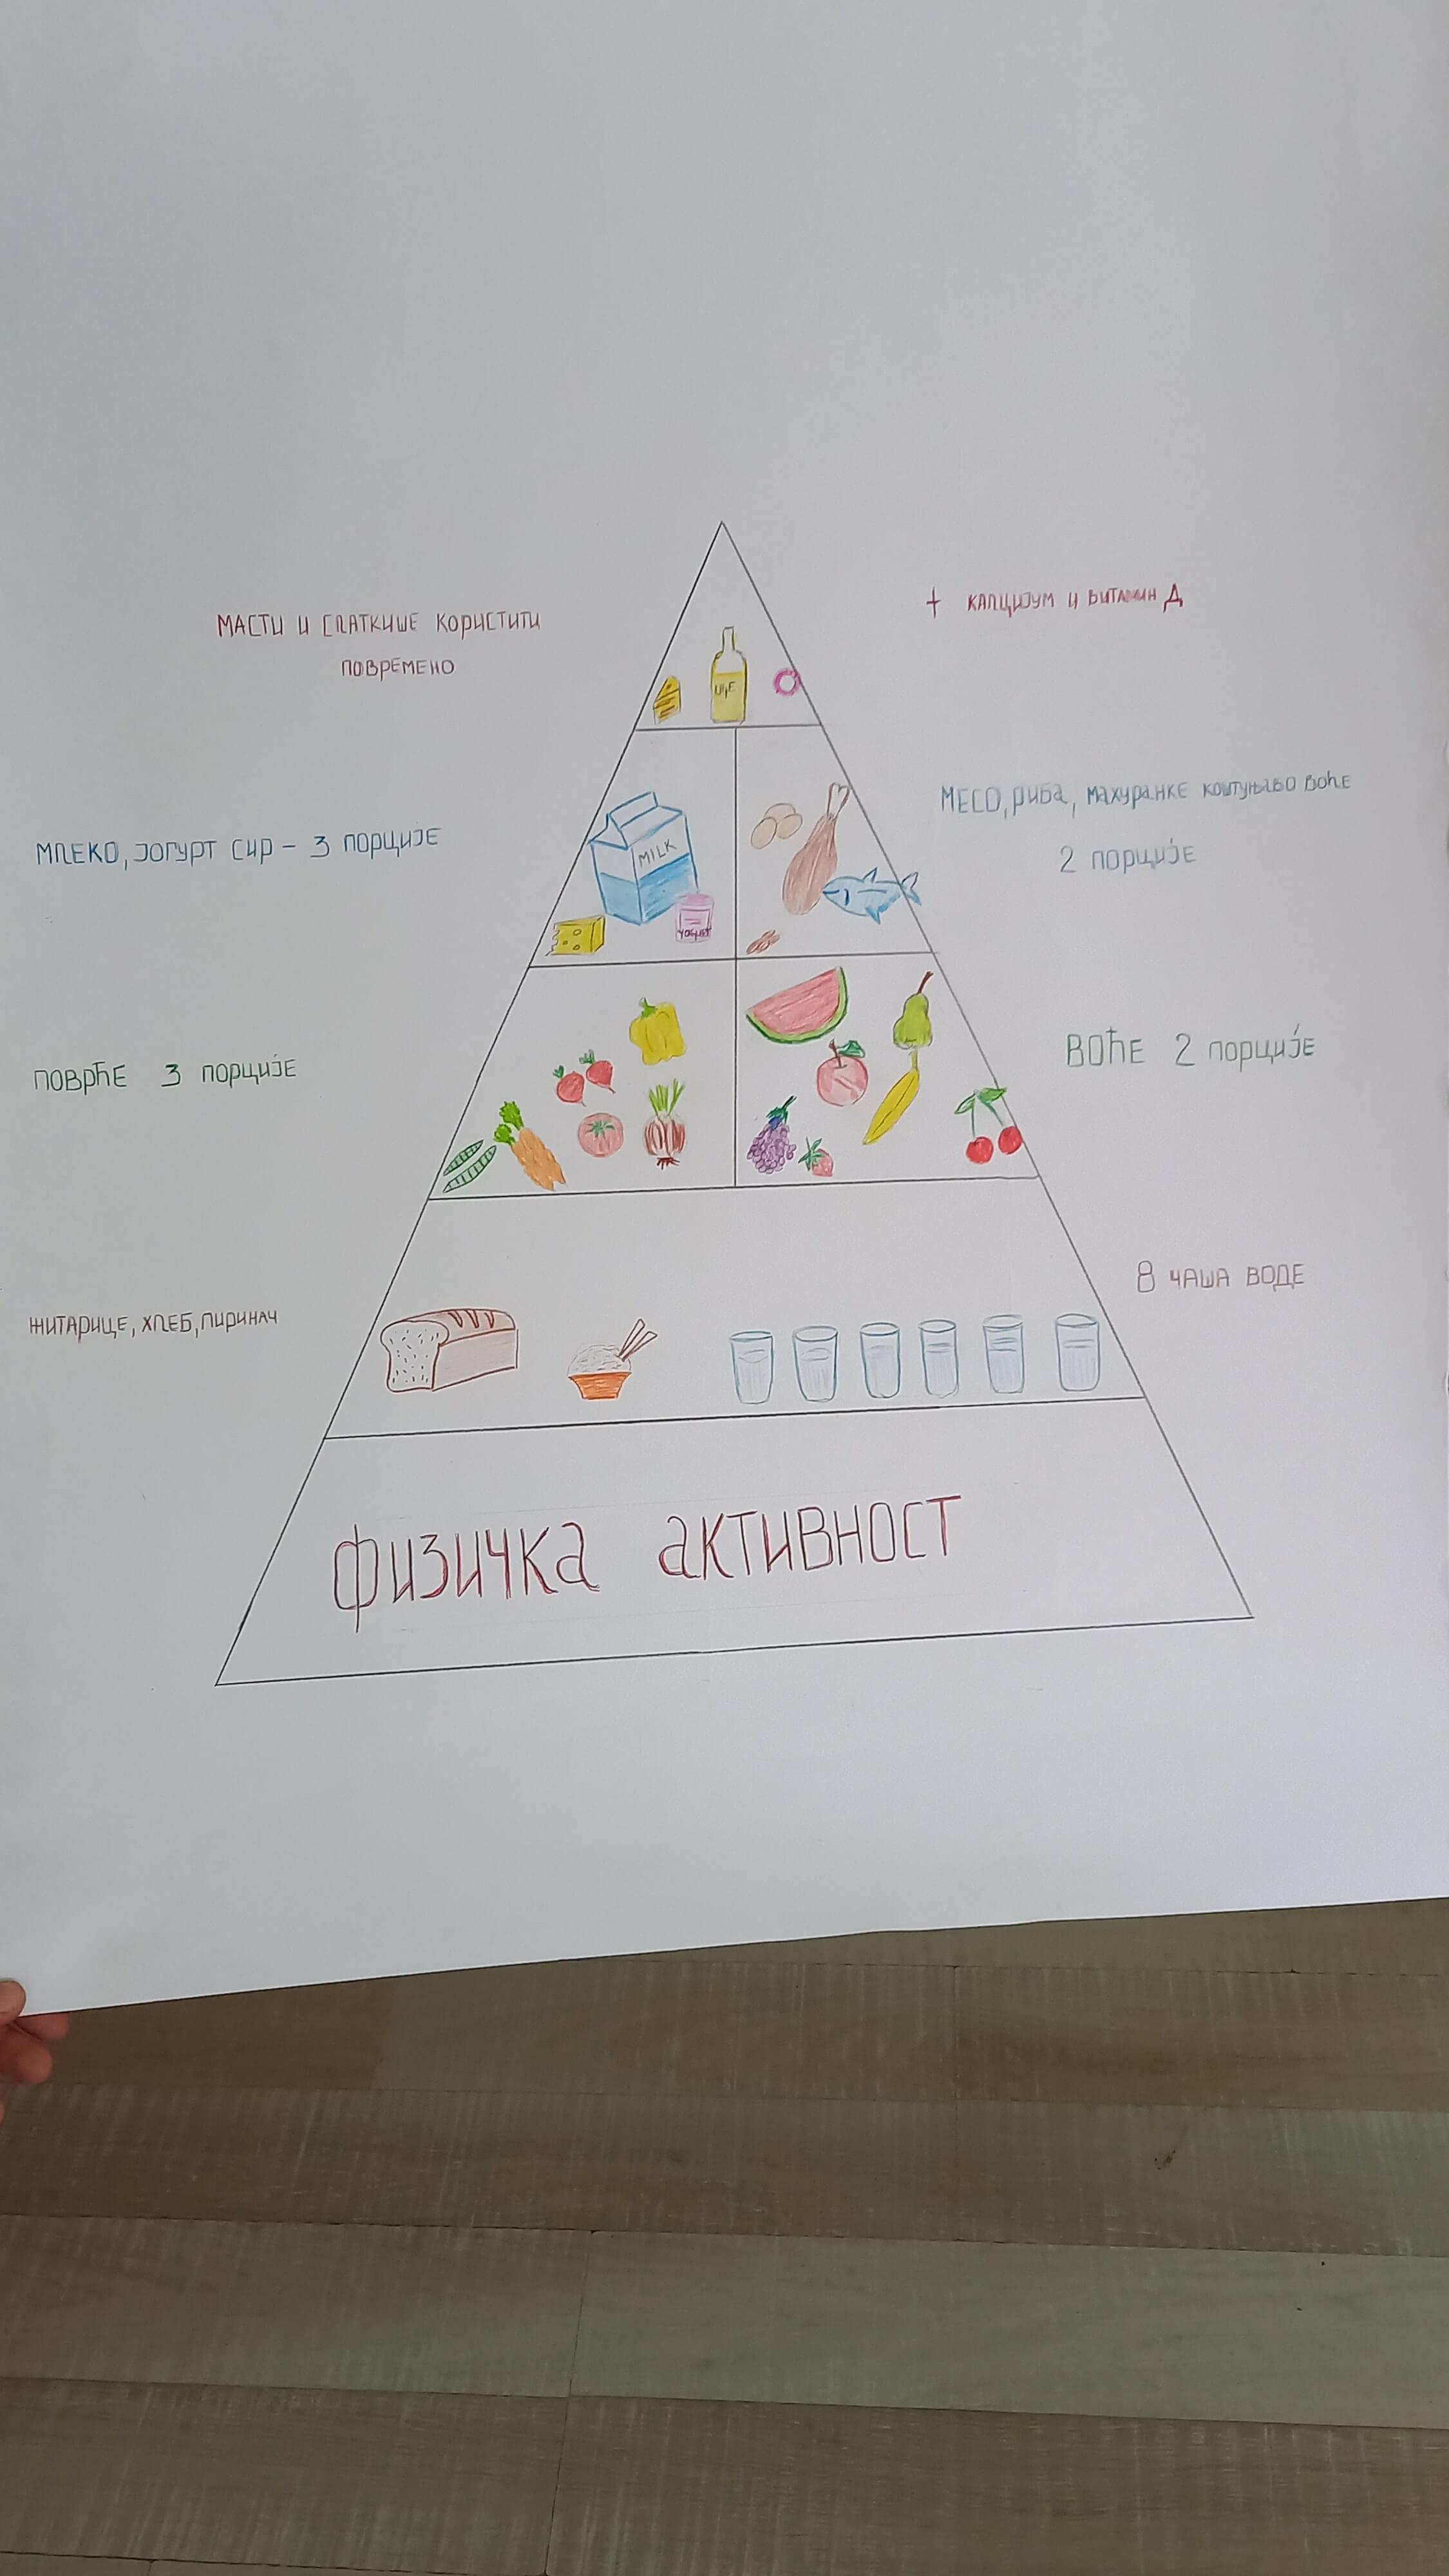 + КАЛЦИЈУМ И ВИТАМИН Д
МАСТИ И СЛАТКИШЕ КОРИСТИТИ
ПОВРЕМЕНО
УЉЕ
МЕСО, РИБА, МАХУРАНКЕ КОШТУЊАВО ВОЋЕ
2 ПОРЦИЈЕ
МЛЕКО, ЈОГУРТ СИР - 3 ПОРЦИЈЕ
MILK
YOGURT
ВОЋЕ 2 ПОРЦИЈЕ
ПОВРЋЕ 3 ПОРЦИЈЕ
8 ЧАША ВОДЕ
ЖИТАРИЦЕ, ХЛЕБ, ПИРИНАЧ
ФИЗИЧКА АКТИВНОСТ